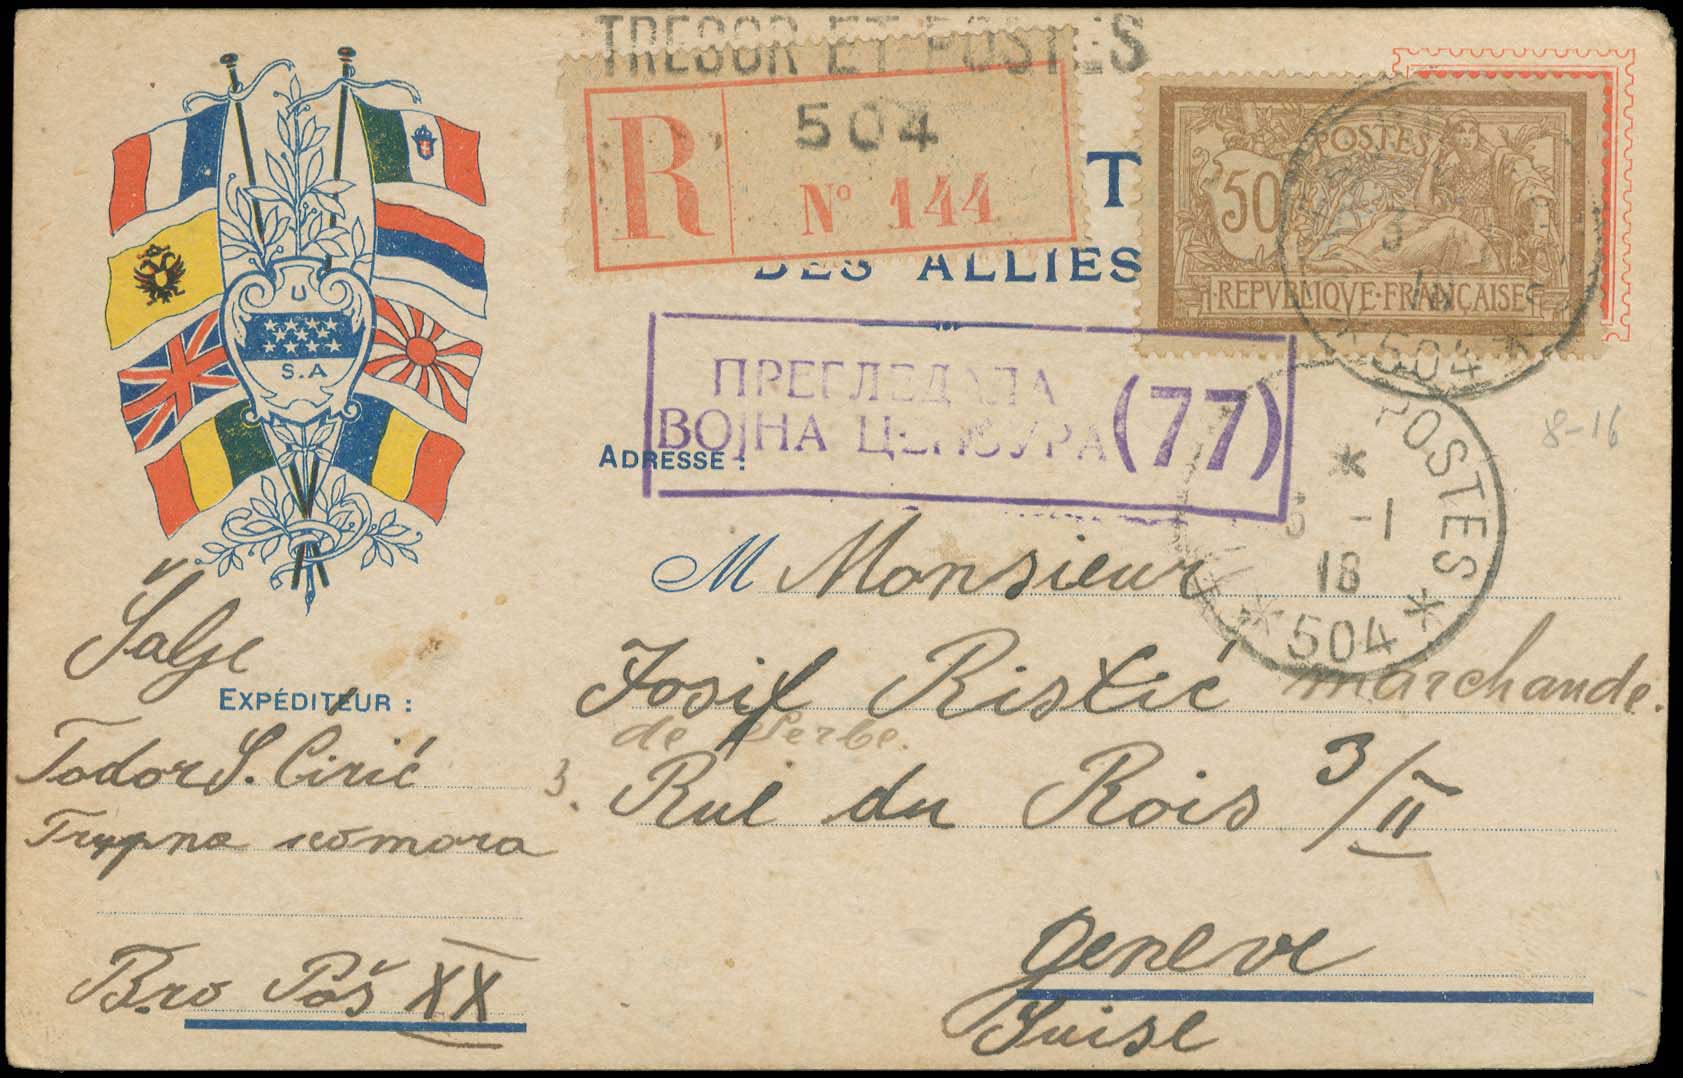 TRESOR ET POSTES
504
R
Nº 144
T
DES ALLIÉS
POSTES
50
REPVBLIQVE·FRANÇAISE
504
U
S.A
ПРЕГЛЕДАЛА
ВОЈНА ЦЕНЗУРА
(77)
8-16
ADRESSE :
POSTES
3 -1
18
504
M Monsieur
Josif Ristić marchande.
de Serbe.
Rue du Rois 3/II
Geneve
Suise
Šalje
EXPÉDITEUR :
Todor S. Cirić
3.
Trupna komora
Br. Poš XX